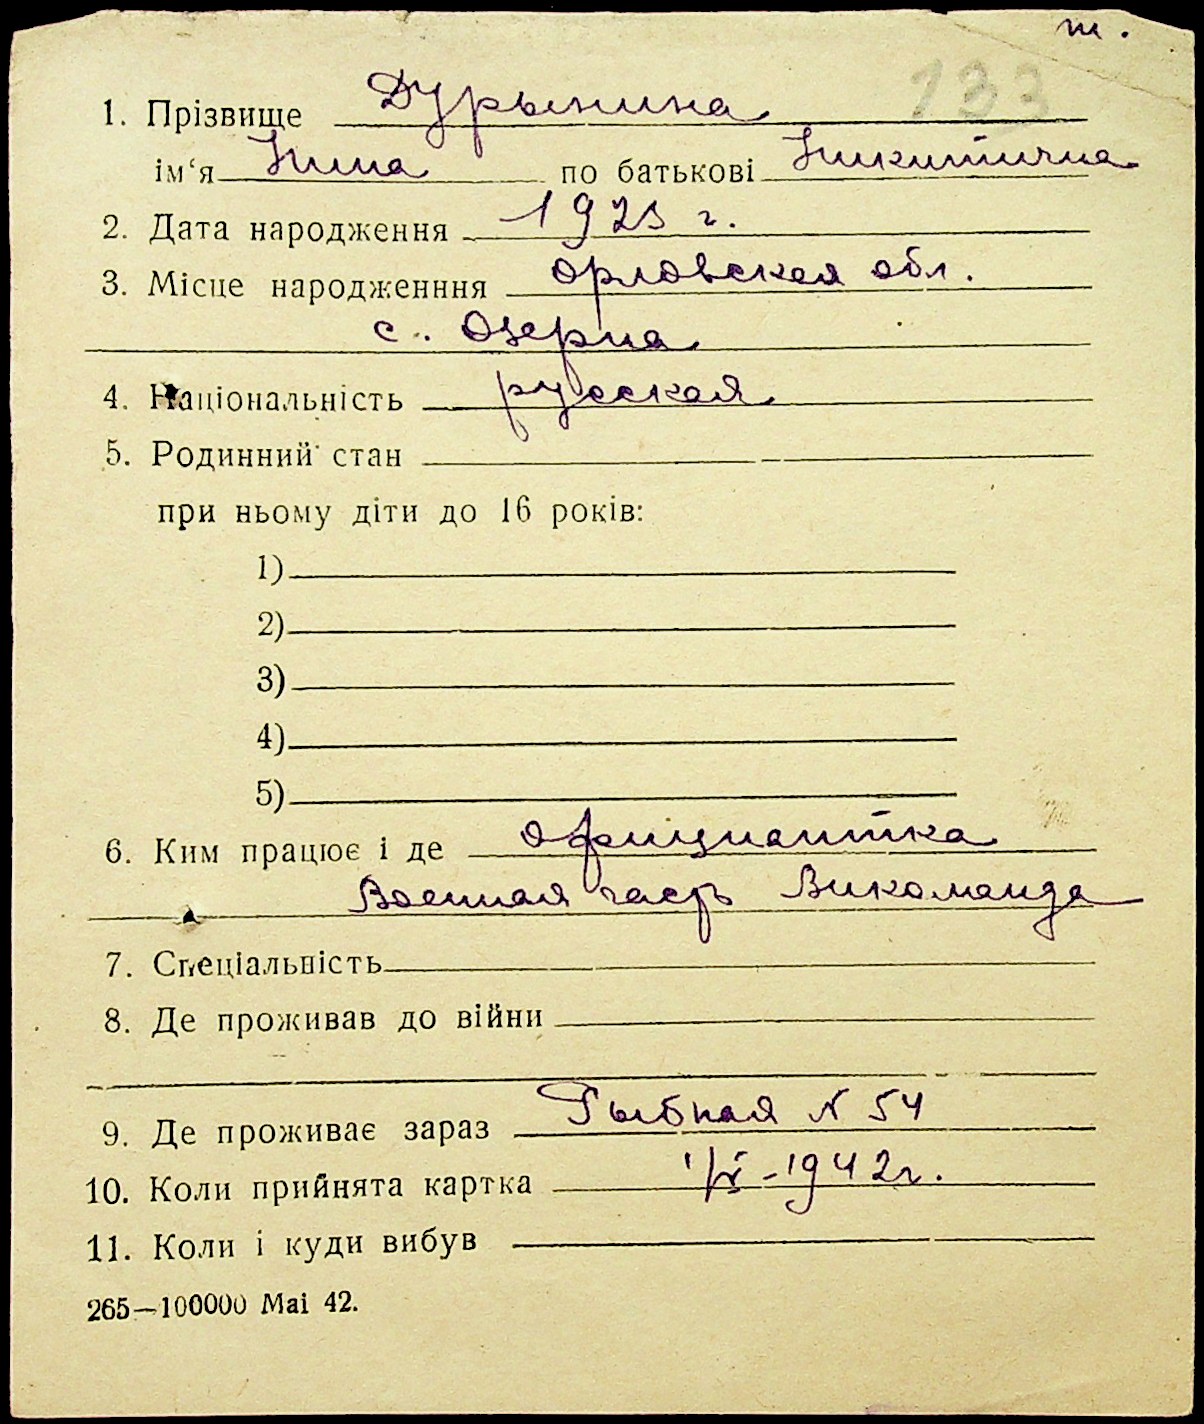 т.
133
1. Прізвище Дурынина
ім‘я Нина по батькові Никитична
2. Дата народження 1923 г.
3. Місце народженння Орловская обл.
с. Озерна
4. Національність русская
5. Родинний стан
при ньому діти до 16 років:
1)
2)
3)
4)
5)
6. Ким працює і де официантка
Военная часть Викоманда
7. Спеціальність
8. Де проживав до війни
9. Де проживає зараз Рыбная N 54
10. Коли прийнята картка 1942 г.
11. Коли і куди вибув
265—100000 Mai 42.